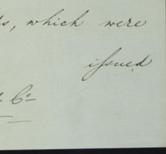 s, which were
issued
& Co